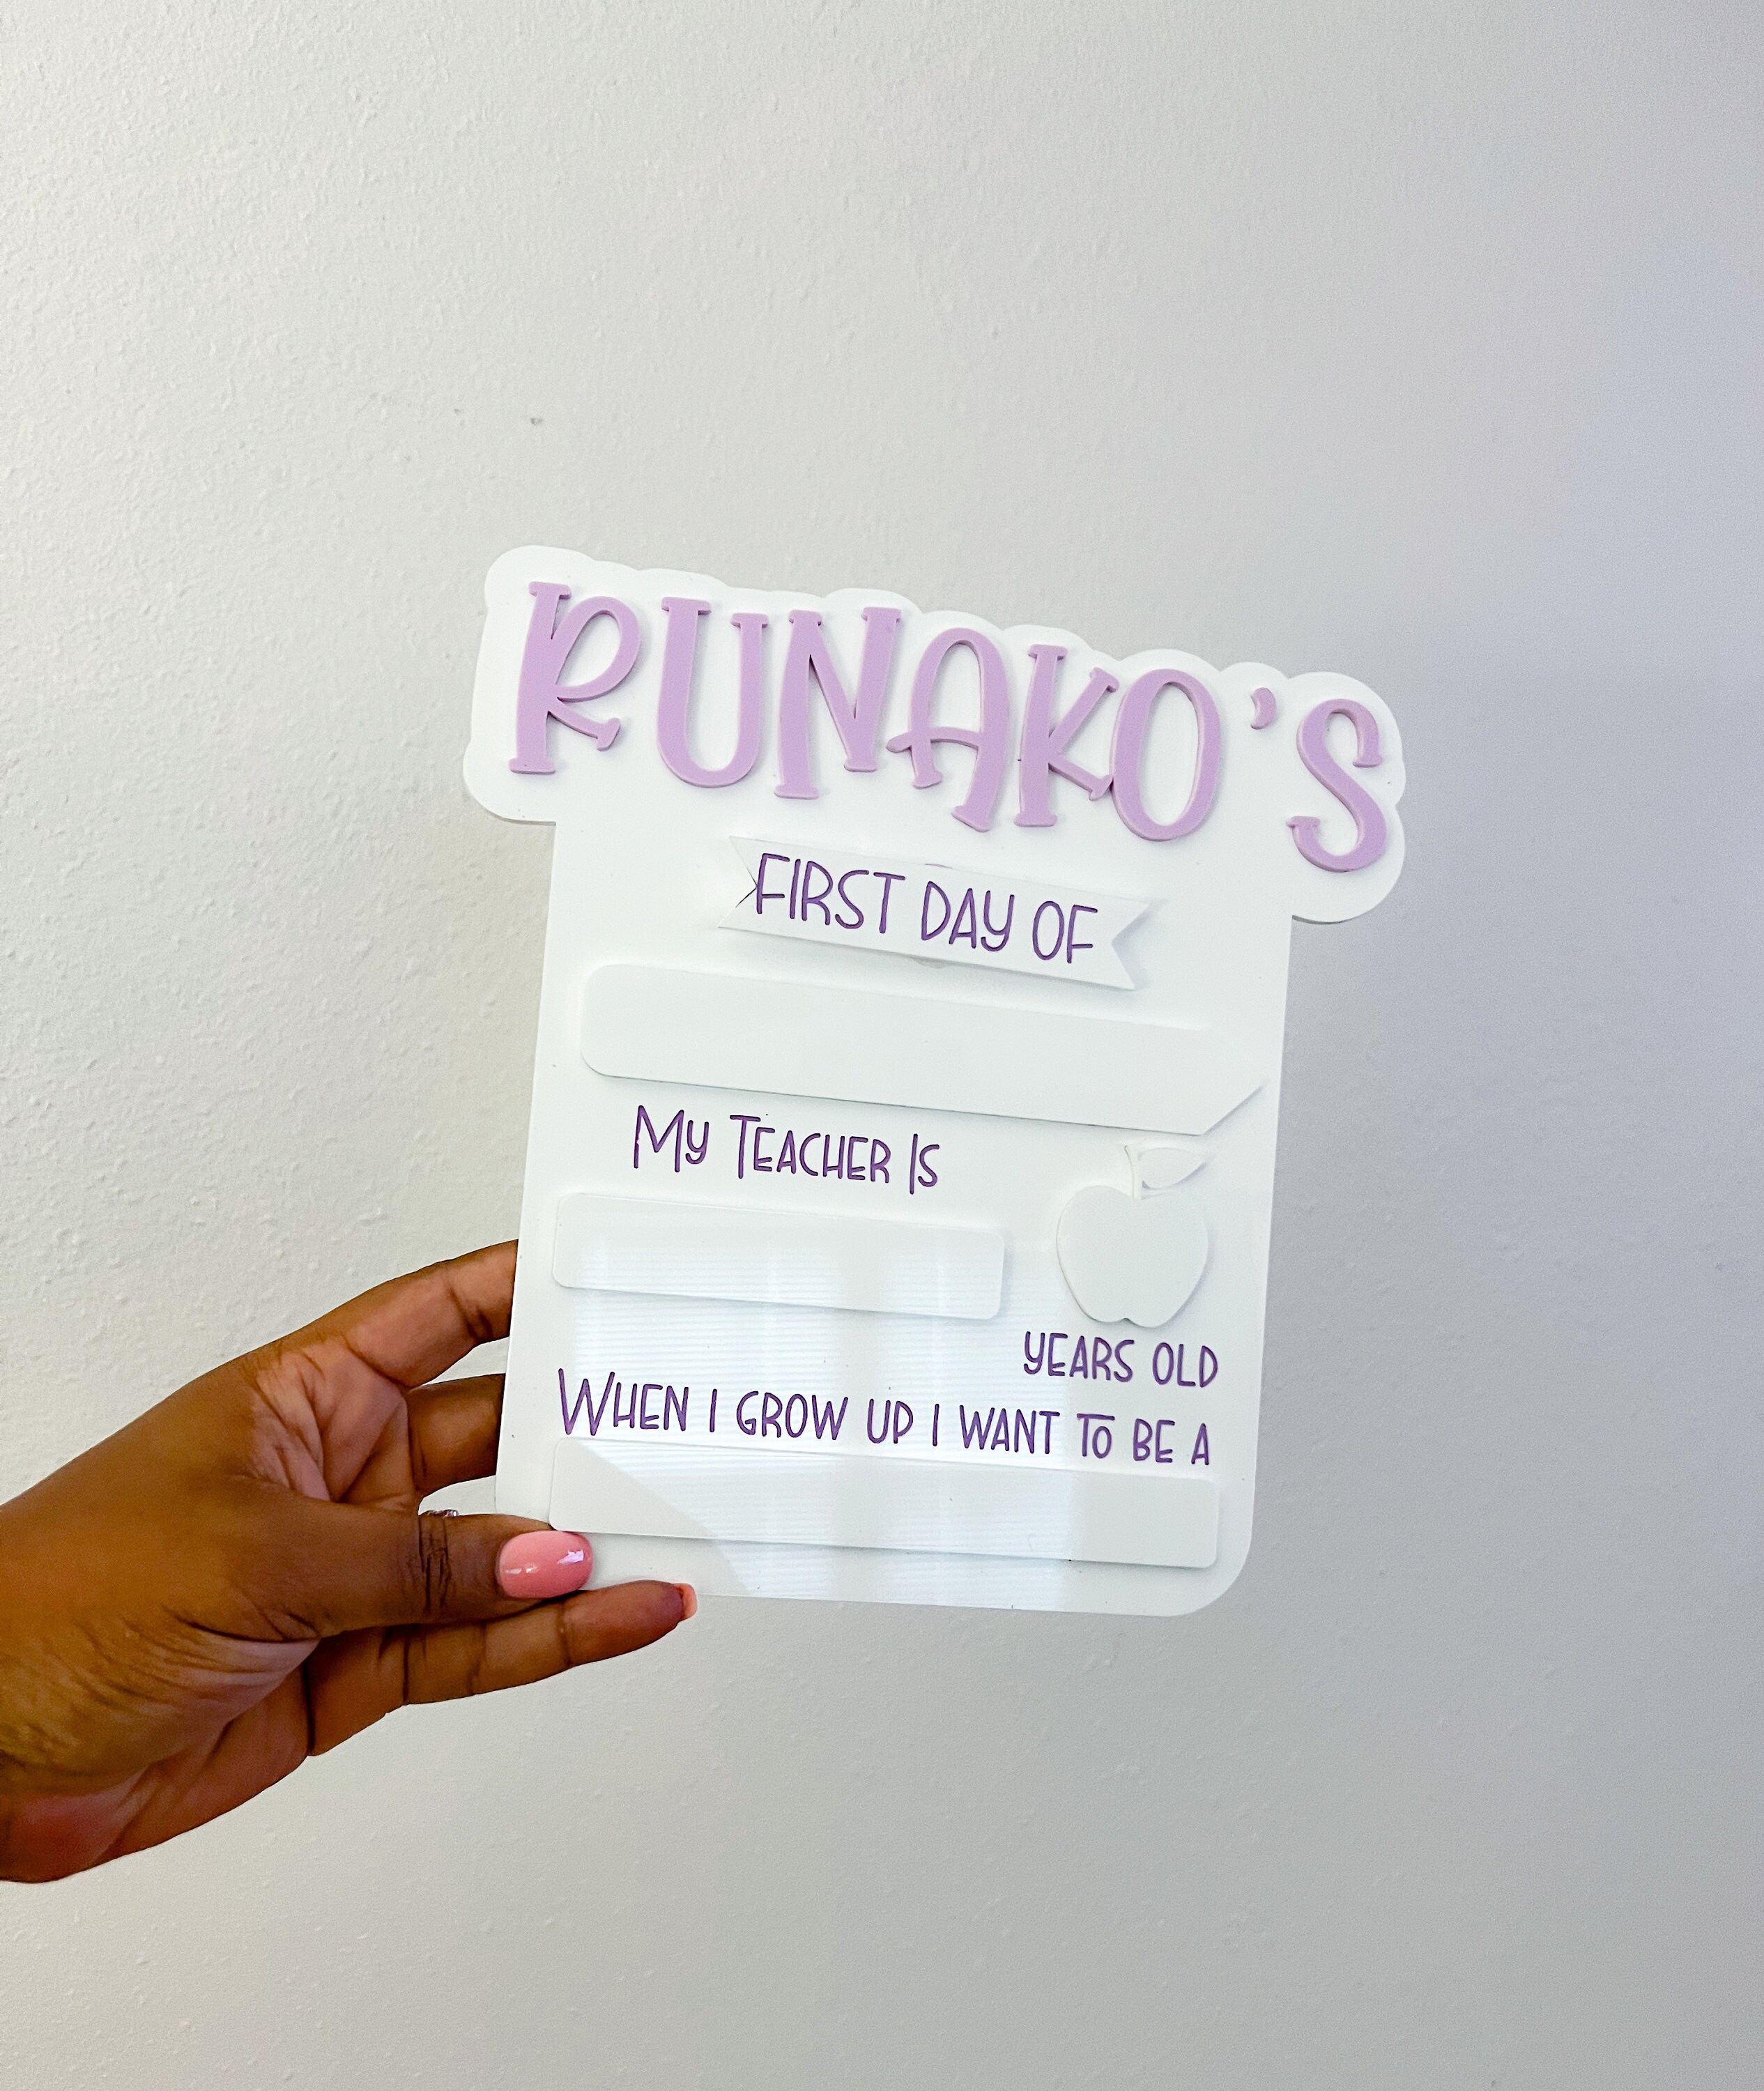 RUNAKO'S
FIRST DAY OF
My TEACHER IS
YEARS OLD
WHEN I GROW UP I WANT TO BE A